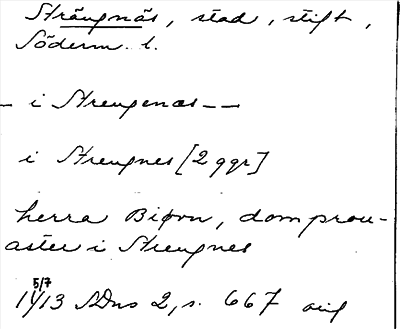 Strängnäs, stad, stift,
Söderm. l.
— i Strengenæs——
i Strengnes [2 ggr]
herra Biørn, domprou-
aster i Strengnes
5/7
1413 SDns 2, s. 667 orig